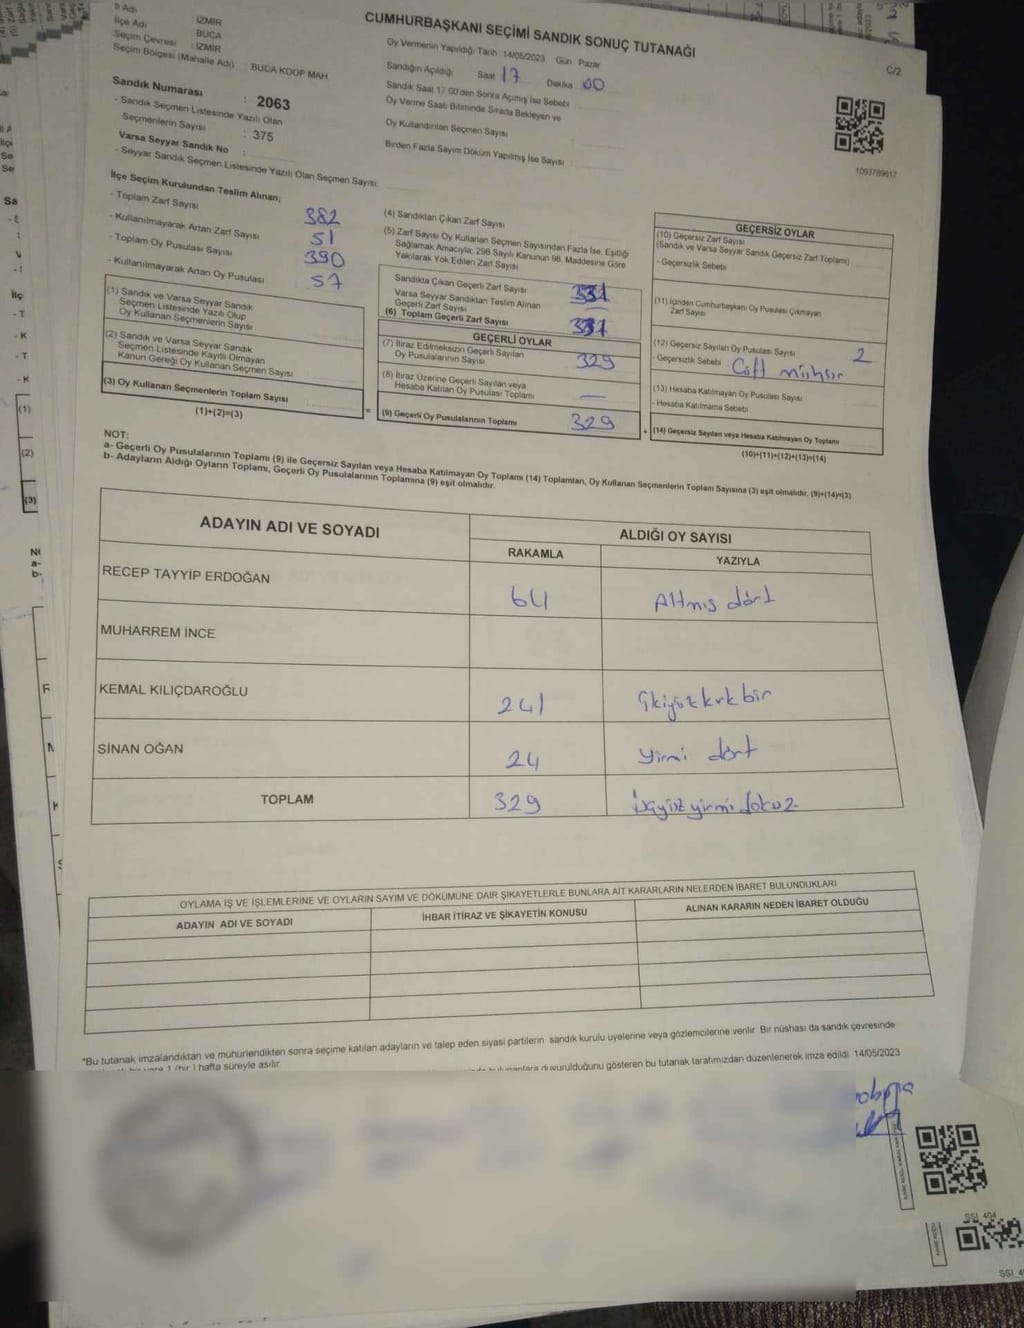 CUMHURBAŞKANI SEÇİMİ SANDIK SONUÇ TUTANAĞI
C/2
İl Adı İZMİR
İlçe Adı BUCA
Seçim Çevresi : İZMİR
Seçim Bölgesi (Mahalle Adı) : BUCA KOOP MAH
Sandık Numarası : 2063
- Sandık Seçmen Listesinde Yazılı Olan
Seçmenlerin Sayısı : 375
Varsa Seyyar Sandık No :
- Seyyar Sandık Seçmen Listesinde Yazılı Olan Seçmen Sayısı:
Oy Vermenin Yapıldığı Tarih 14/05/2023 Gün : Pazar
Sandığın Açıldığı Saat 17 Dakika 00
Sandık Saat 17 00'den Sonra Açımış İse Sebebi
Oy Verme Saati Bitiminde Sırada Bekleyen ve
Oy Kullandırılan Seçmen Sayısı
Birden Fazla Sayım Döküm Yapılmış İse Sayısı
1093789617
İlçe Seçim Kurulundan Teslim Alınan;
- Toplam Zarf Sayısı 382
- Kullanılmayarak Artan Zarf Sayısı 51
- Toplam Oy Pusulası Sayısı 390
- Kullanılmayarak Artan Oy Pusulası 57
(1) Sandık ve Varsa Seyyar Sandık
Seçmen Listesinde Yazılı Olup
Oy Kullanan Seçmenlerin Sayısı
(2) Sandık ve Varsa Seyyar Sandık
Seçmen Listesinde Kayıtlı Olmayan
Kanun Gereği Oy Kullanan Seçmen Sayısı
(3) Oy Kullanan Seçmenlerin Toplam Sayısı
(1)+(2)=(3)
(4) Sandıktan Çıkan Zarf Sayısı
(5) Zarf Sayısı Oy Kullanan Seçmen Sayısından Fazla İse, Eşitliği
Sağlamak Amacıyla; 298 Sayılı Kanunun 98. Maddesine Göre
Yakılarak Yok Edilen Zarf Sayısı
Sandıkta Çıkan Geçerli Zarf Sayısı 331
Varsa Seyyar Sandıktan Teslim Alınan
Geçerli Zarf Sayısı
(6) Toplam Geçerli Zarf Sayısı 331
GEÇERLİ OYLAR
(7) İtiraz Edilmeksizin Geçerli Sayılan
Oy Pusulalarının Sayısı 329
(8) İtiraz Üzerine Geçerli Sayılan veya
Hesaba Katılan Oy Pusulası Toplamı —
= (9) Geçerli Oy Pusulalarının Toplamı 329
GEÇERSİZ OYLAR
(10) Geçersiz Zarf Sayısı
(Sandık ve Varsa Seyyar Sandık Geçersiz Zarf Toplamı)
- Geçersizlik Sebebi
(11) İçinden Cumhurbaşkanı Oy Pusulası Çıkmayan
Zarf Sayısı
(12) Geçersiz Sayılan Oy Pusulası Sayısı 2
- Geçersizlik Sebebi Çift mühür
(13) Hesaba Katılmayan Oy Pusulası Sayısı
- Hesaba Katılmama Sebebi
+ (14) Geçersiz Sayılan veya Hesaba Katılmayan Oy Toplamı
(10)+(11)+(12)+(13)=(14)
NOT:
a- Geçerli Oy Pusulalarının Toplamı (9) ile Geçersiz Sayılan veya Hesaba Katılmayan Oy Toplamı (14) Toplamları, Oy Kullanan Seçmenlerin Toplam Sayısına (3) eşit olmalıdır. (9)+(14)=(3)
b- Adayların Aldığı Oyların Toplamı, Geçerli Oy Pusulalarının Toplamına (9) eşit olmalıdır.
ADAYIN ADI VE SOYADI ALDIĞI OY SAYISI
RAKAMLA YAZIYLA
RECEP TAYYİP ERDOĞAN 64 Altmış dört
MUHARREM İNCE
KEMAL KILIÇDAROĞLU 241 ikiyüzkırkbir
SİNAN OĞAN 24 yirmi dört
TOPLAM 329 üçyüzyirmidokuz
OYLAMA İŞ VE İŞLEMLERİNE VE OYLARIN SAYIM VE DÖKÜMÜNE DAİR ŞİKAYETLERLE BUNLARA AİT KARARLARIN NELERDEN İBARET BULUNDUKLARI
ADAYIN ADI VE SOYADI İHBAR İTİRAZ VE ŞİKAYETİN KONUSU ALINAN KARARIN NEDEN İBARET OLDUĞU
*Bu tutanak imzalandıktan ve mühürlendikten sonra seçime katılan adayların ve talep eden siyasi partilerin sandık kurulu üyelerine veya gözlemcilerine verilir. Bir nüshası da sandık çevresinde
1 (bir) hafta süreyle asılır.
duyurulduğunu gösteren bu tutanak tarafımızdan düzenlenerek imza edildi. 14/05/2023
SSI_404